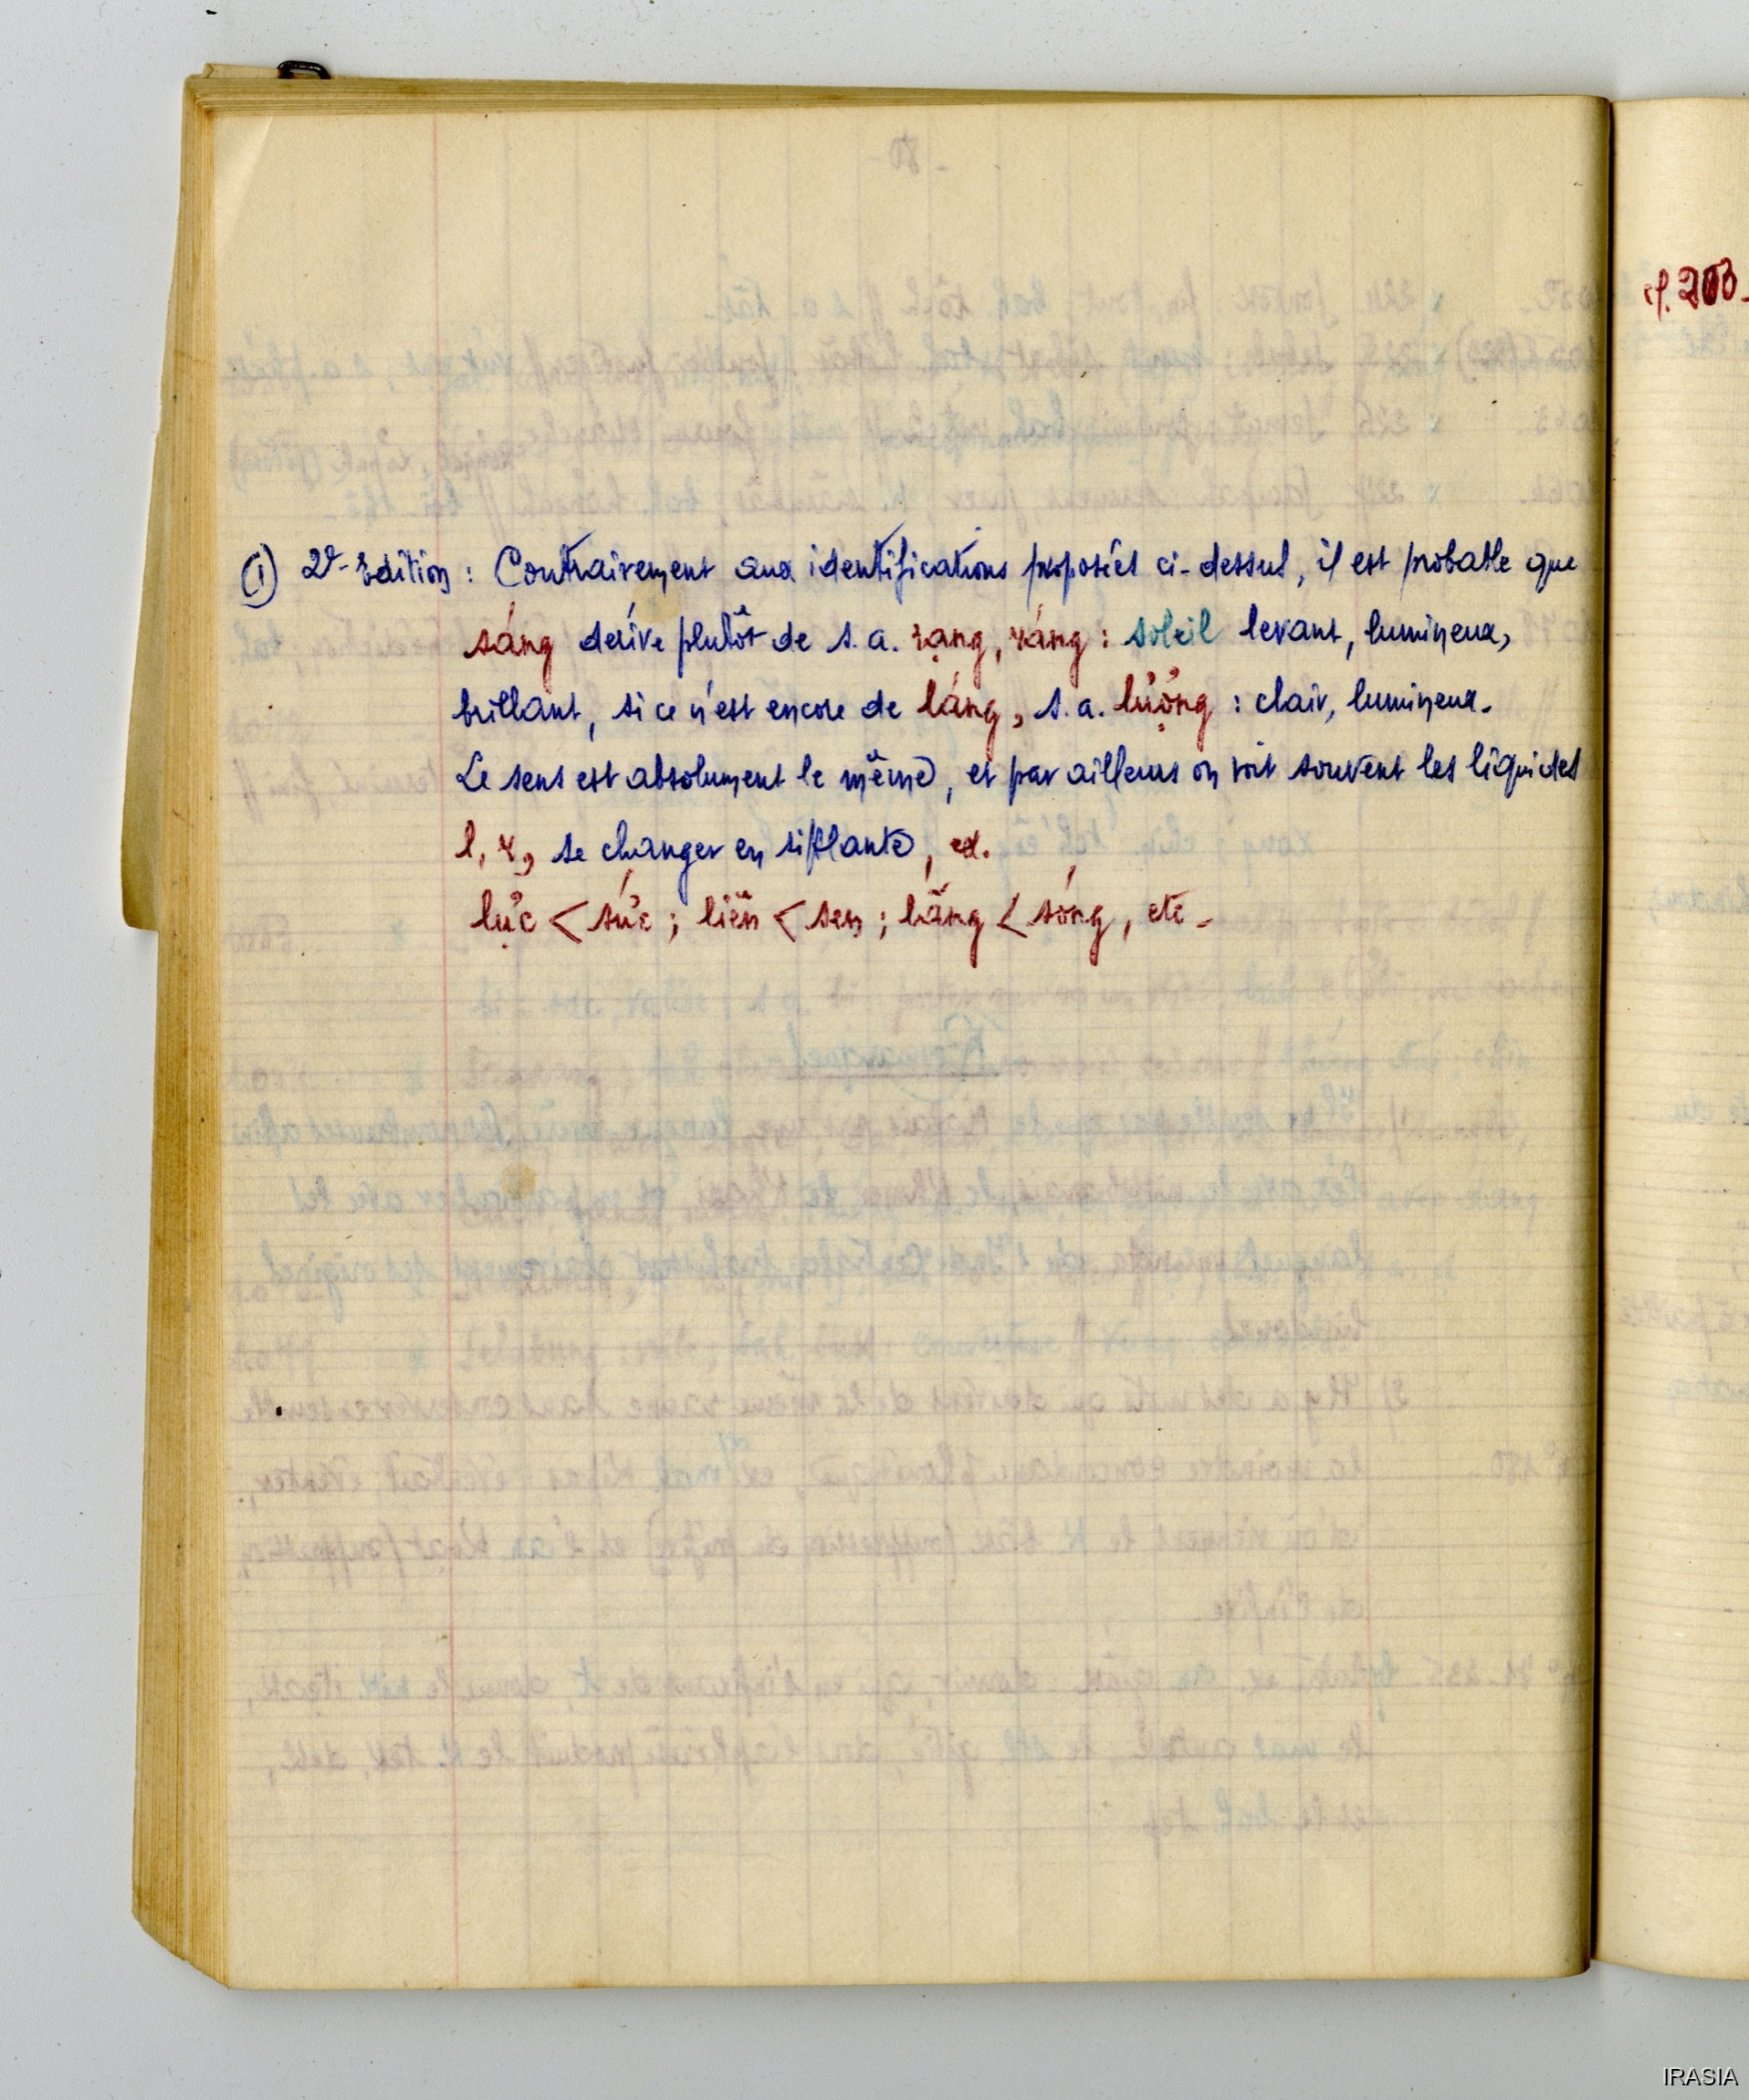 ① 2e Edition : Contrairement aux identifications proposées ci-dessus, il est probable que
sáng dérive plutôt de s.a. rạng, ráng : soleil levant, lumineux,
brillant, si ce n'est encore de láng, s.a. lượng : clair, lumineux.
Le sens est absolument le même, et par ailleurs on voit souvent les liquides
l, r, se changer en sifflante, ex.
lực < sức ; liên < sen ; lãng < sóng, etc.
cf. 203.
IRASIA